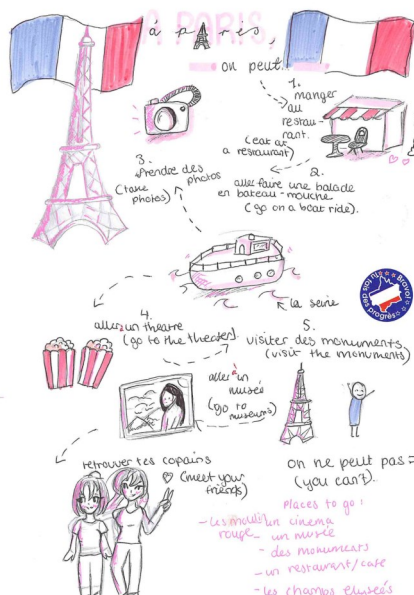 à PARIS,
à pAris,
on peut
1.
manger
au
restau-
rant.
(eat at
a restaurant)
2.
aller faire une balade
en bateau-mouche
(go on a boat ride).
3.
Prendre des
photos
(take
photos)
la seine
Bravo!
tu fais
des progrès
4.
aller un theatre
(go to the theater).
5.
visiter des monuments.
(visit the monuments)
aller à un
musée
(go to
museums)
retrouver tes copains
(meet your
friends)
on ne peut pas =
(you can't).
Places to go:
- les moulin
rouge
un cinema
- un musée
- des monuments
- un restaurant/cafe
- les champs elusées